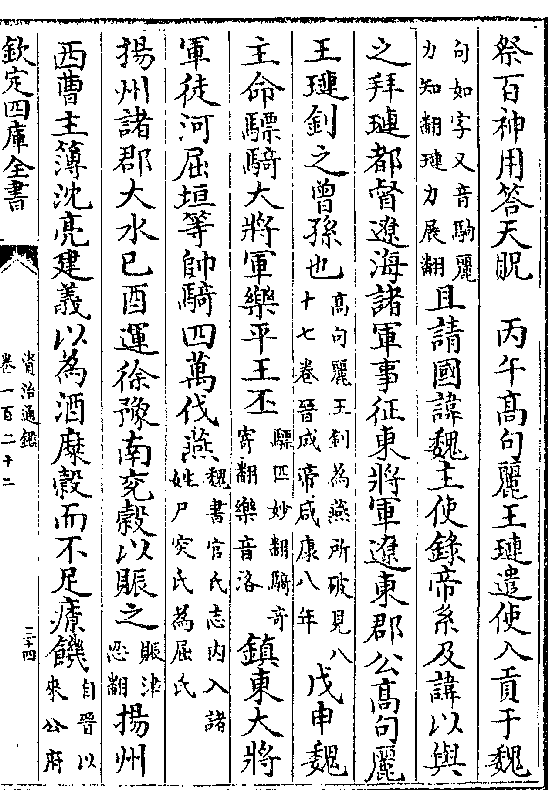 祭百神用答天貺　丙午髙句麗王璉遣使入貢于魏
句如字又音駒麗
力知翻璉力展翻
且請國諱魏主使錄帝系及諱以與
之拜璉都督遼海諸軍事征東將軍遼東郡公髙句麗
王璉釗之曾孫也
髙句麗王釗為燕所破見八
十七卷晉成帝咸康八年
戊申魏
主命驃騎大將軍樂平王丕
驃匹妙翻騎奇
寄翻樂音洛
鎮東大將
軍徒河屈垣等帥騎四萬伐燕
魏書官氏志内入諸
姓尸突氏為屈氏
揚州諸郡大水已酉運徐豫南兗穀以賑之
賑津
忍翻
揚州
西曹主簿沈亮建義以為酒糜穀而不足療饑
自晉以
來公府
欽定四庫全書
資治通鑑
卷一百二十二
二十四